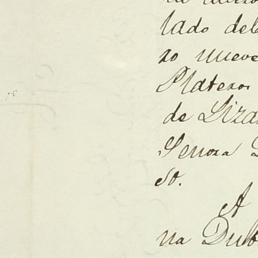 lado del
ro nueve
Platero
de Liza
Senora
so.
A
na Dub